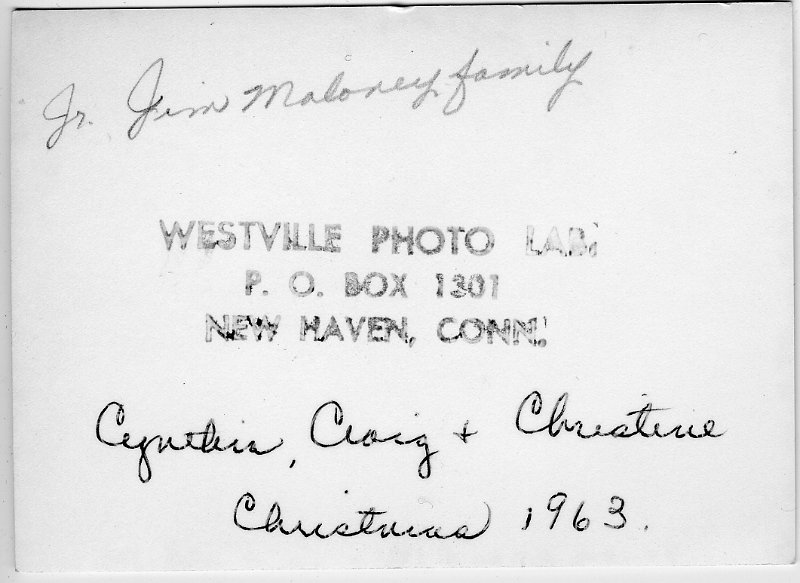 Jr. Jim Maloney family
WESTVILLE PHOTO LAB.
P. O. BOX 1301
NEW HAVEN, CONN.
Cynthia, Craig + Christene
Christmas 1963.